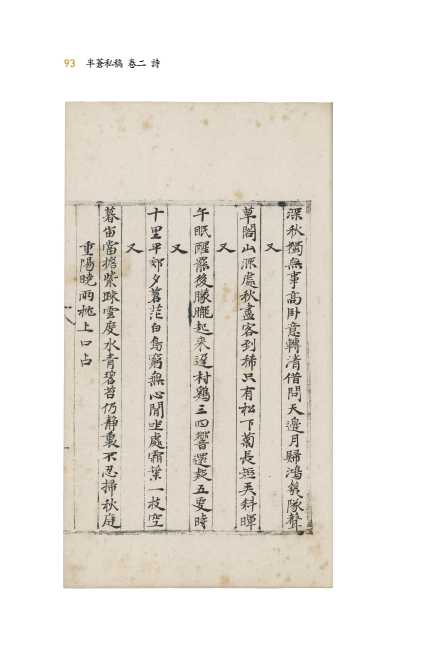 93 半蒼私稿 卷二 詩
深秋獨無事高臥意轉淸借問天邊月歸鴻幾隊聲
又
草閣山深處秋盡客到稀只有松下菊長近夹斜暉
又
午眠醒罷後朦朧起來遲村鷄三四響還疑五更時
又
十里平郊夕蒼茫白鳥窮無心閒坐處霜葉一枝空
又
暮宙當擔紫踈雲度水青碧苔仍静裏不忍掃秋庭
重陽曉雨枕上口占